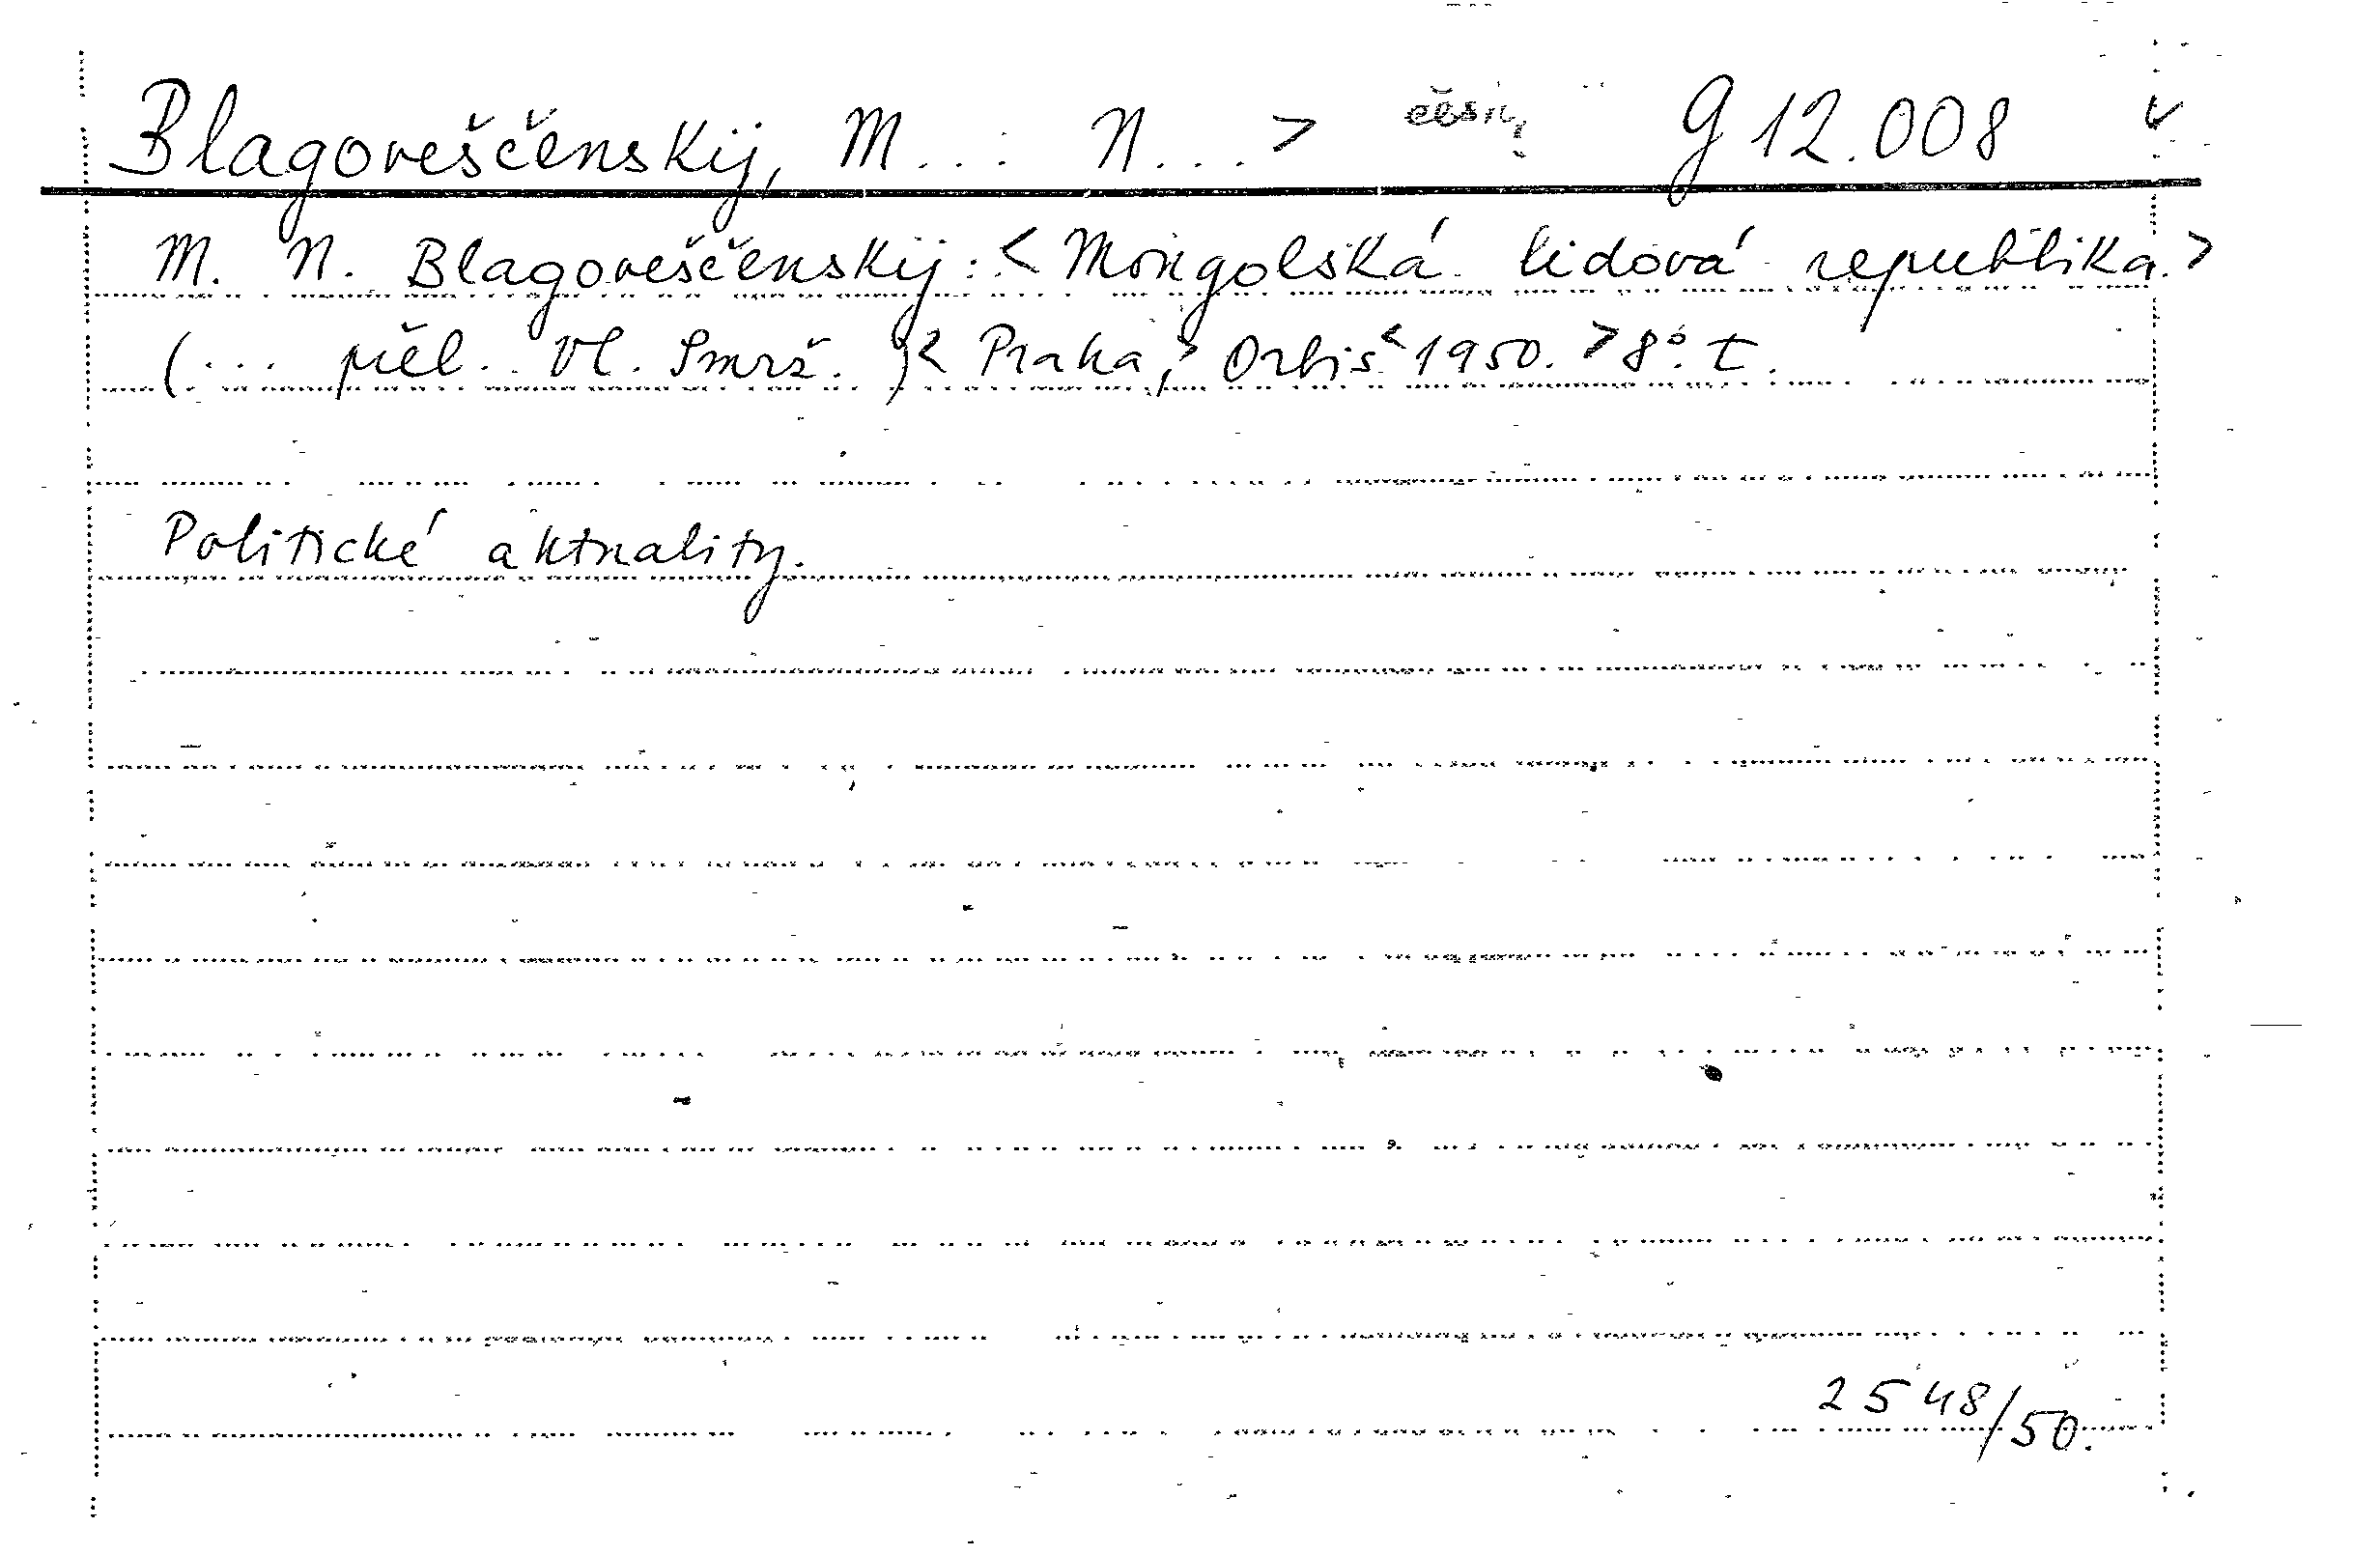 Blagoveščenskij, M... N...> G 12.008
M. N. Blagoveščenskij: <Mongolská lidová republika.>
(... přel. Vl. Smrž.)< Praha,> Orbis <1950.> 8°. t.
Politické aktuality.
2548/50.